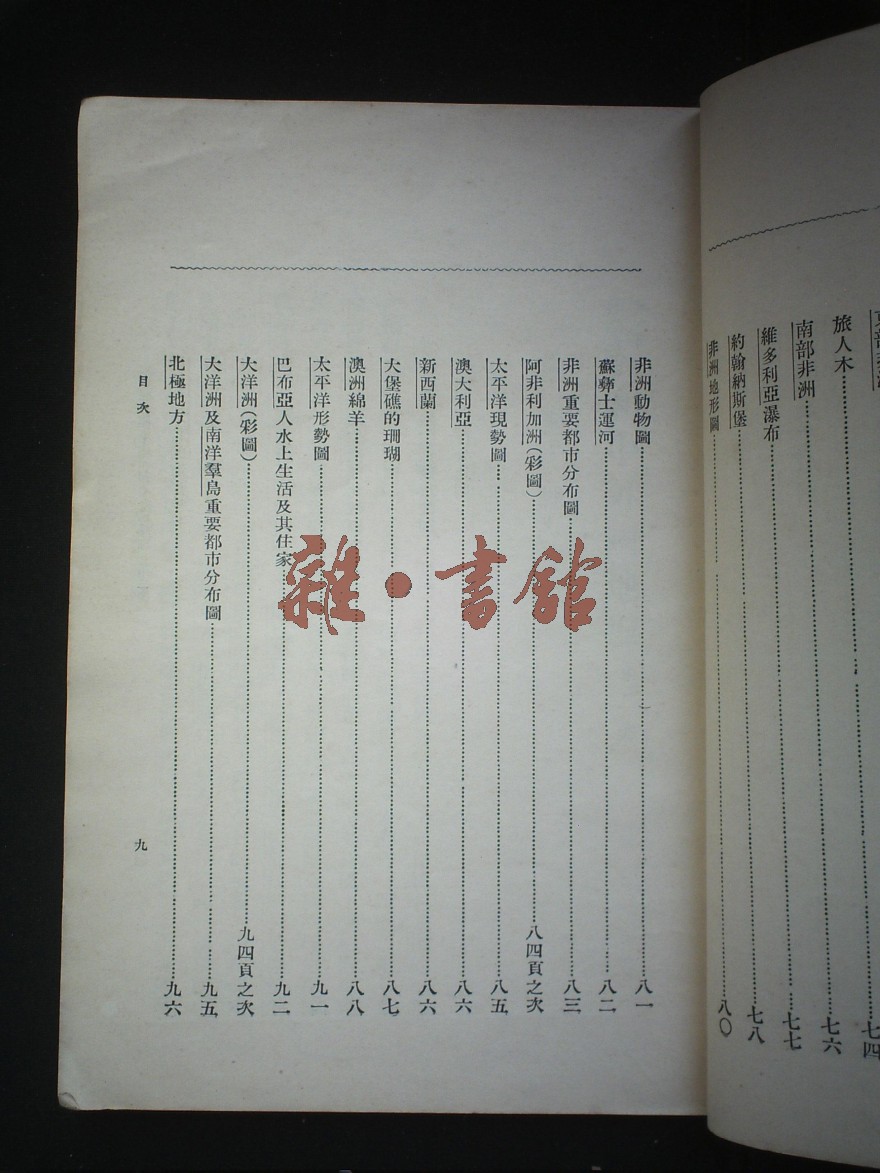 旅人木……七六
南部非洲……七七
維多利亞瀑布……七八
約翰納斯堡
非洲地形圖……八〇
非洲動物圖……八一
蘇彝士運河……八二
非洲重要都市分布圖……八三
阿非利加洲(彩圖)……八四頁之次
太平洋現勢圖……八五
澳大利亞……八六
新西蘭……八六
大堡礁的珊瑚……八七
澳洲綿羊……八八
太平洋形勢圖……九一
巴布亞人水上生活及其住家……九二
大洋洲(彩圖)……九四頁之次
大洋洲及南洋羣島重要都市分布圖……九五
北極地方……九六
目次 九
雜·書館